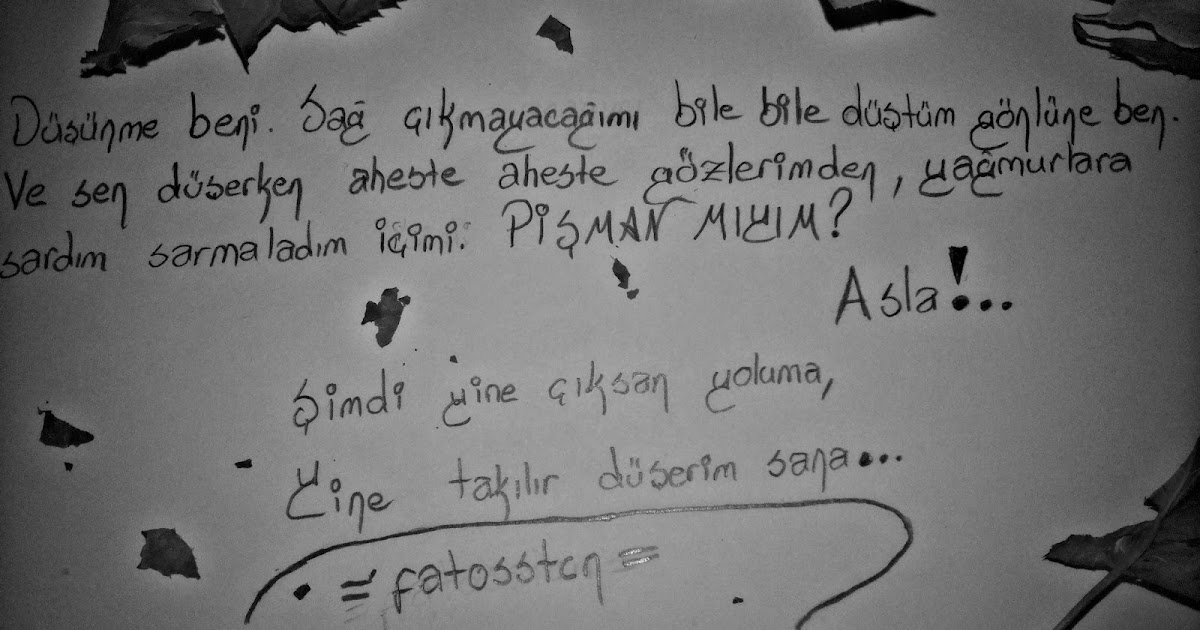 Düşünme beni. Sağ çıkmayacağımı bile bile düştüm gönlüne ben.
Ve sen düşerken aheste aheste gözlerimden, yağmurlara
sardım sarmaladım içimi. PİŞMAN MIYIM?
Asla!...
Şimdi yine çıksan yoluma,
Yine takılır düşerim sana...
= fatosstcn =